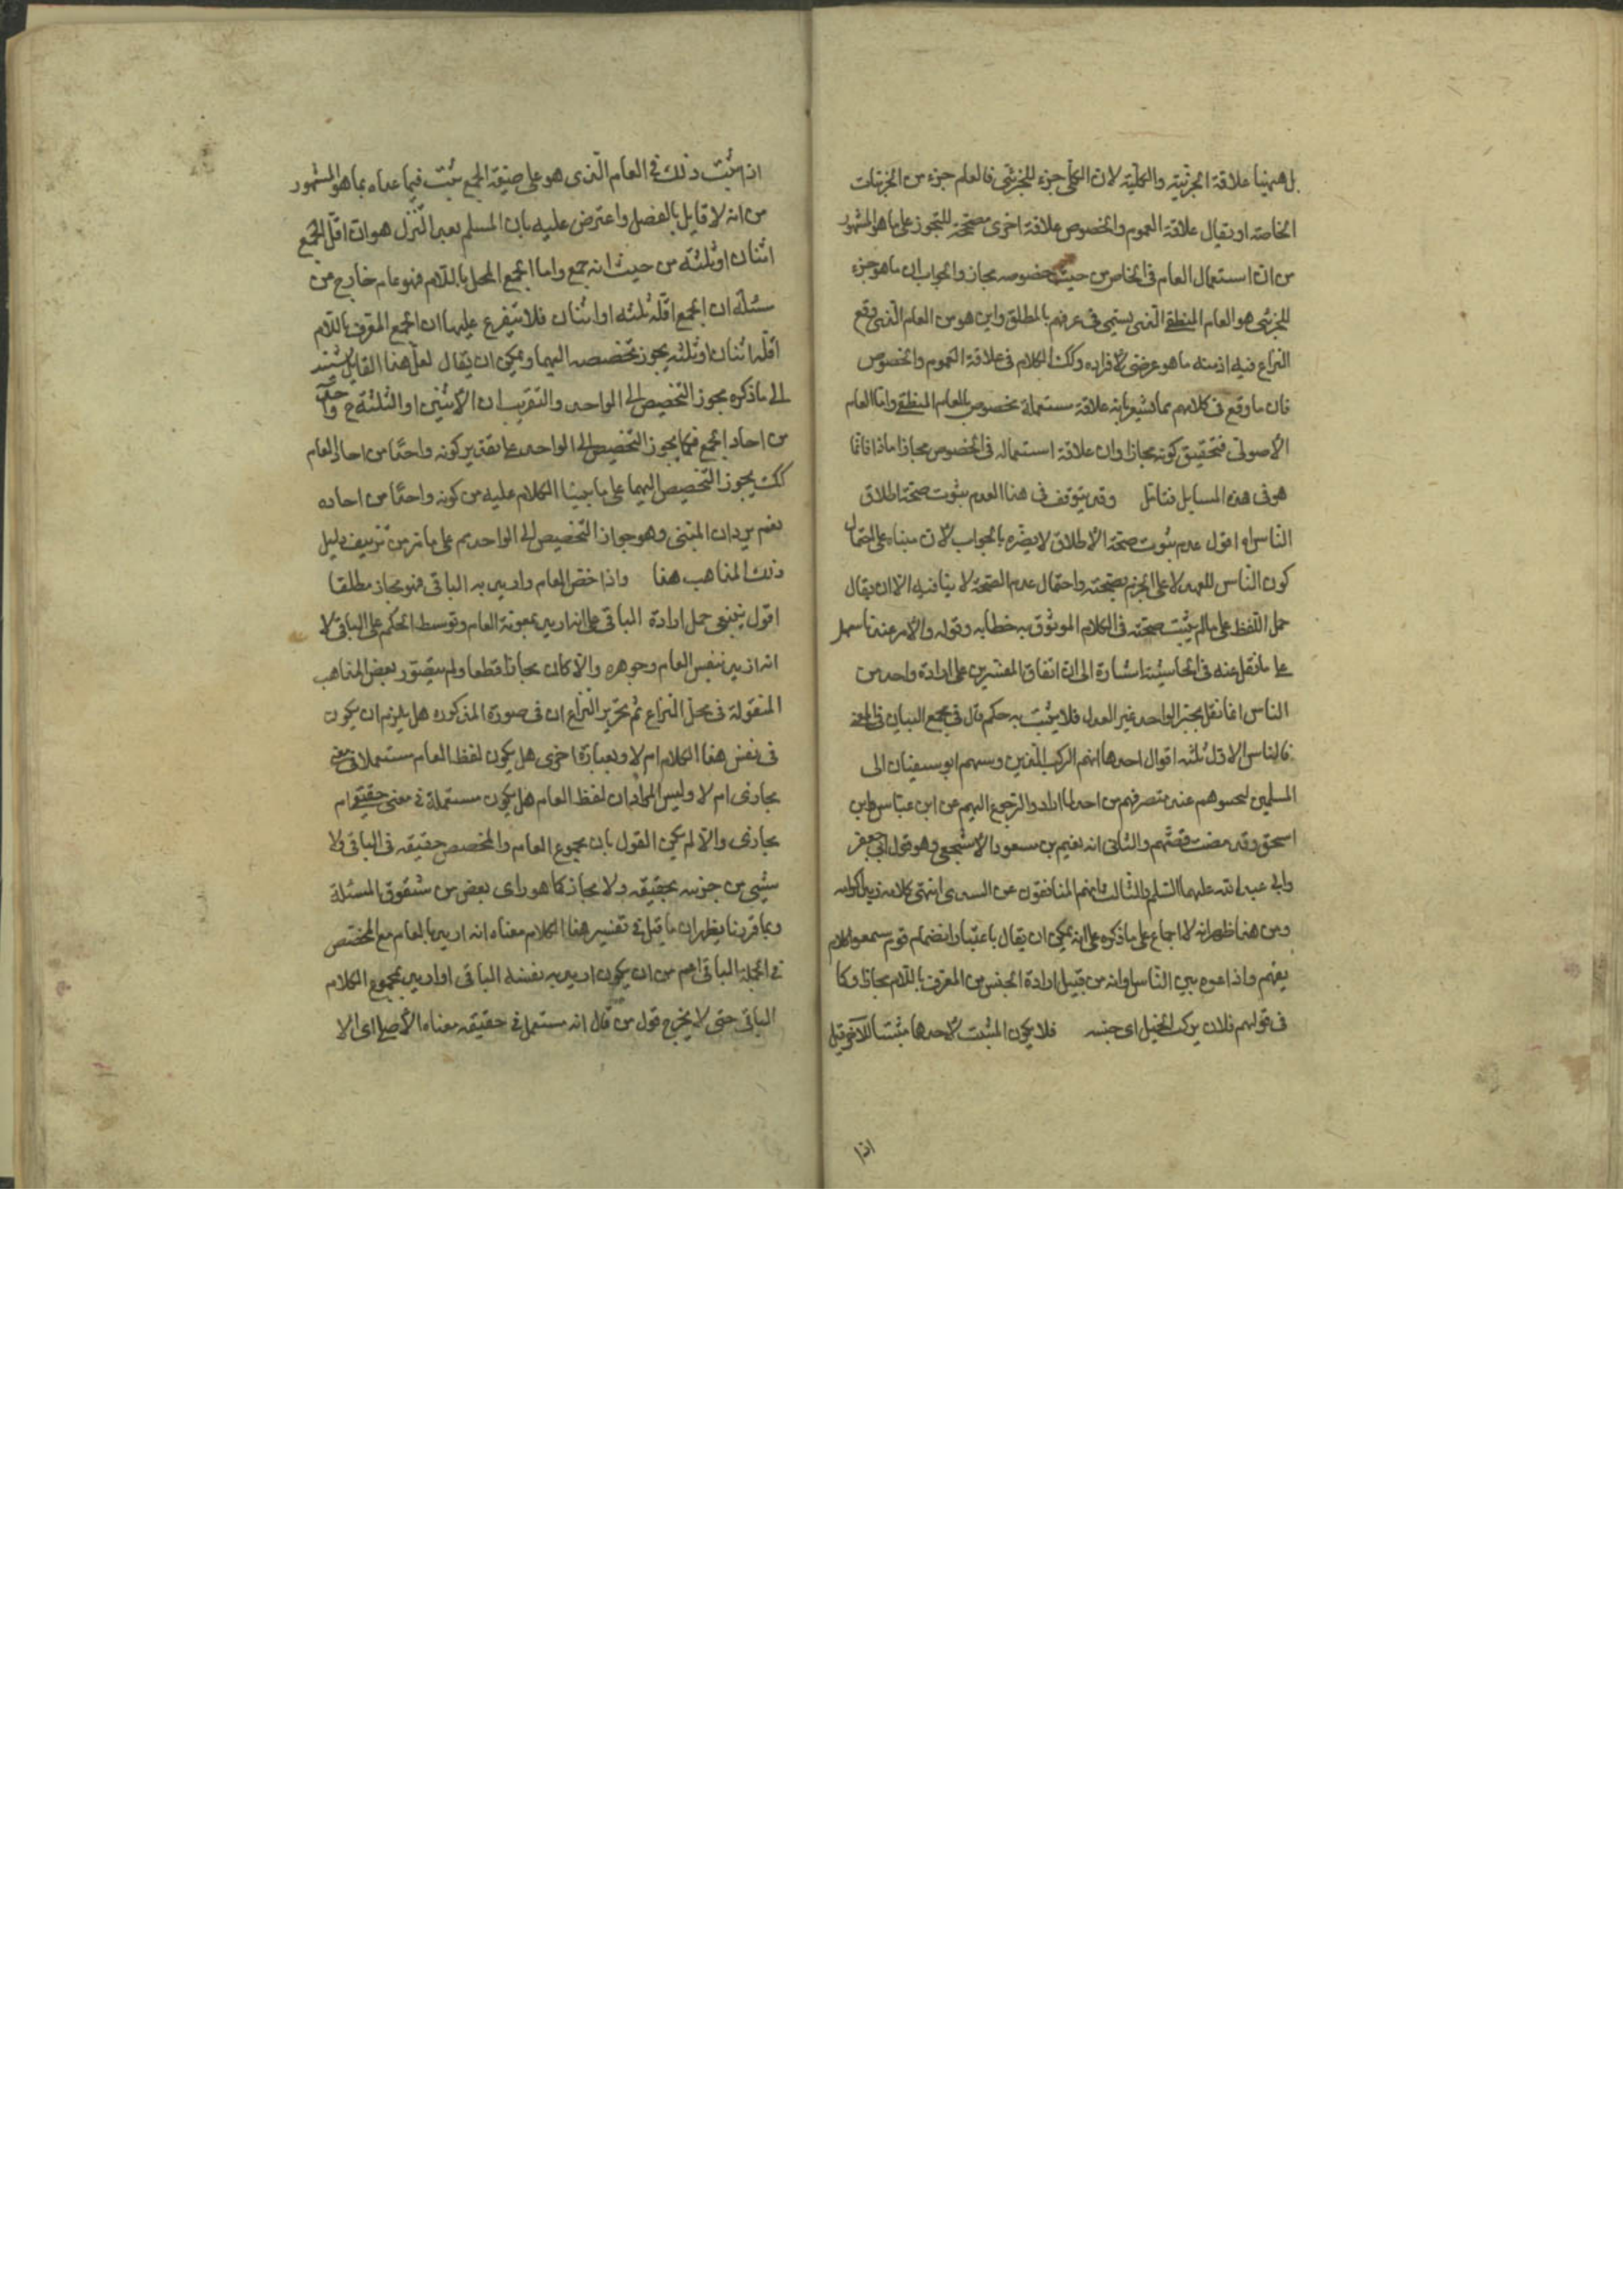 بل ههنا علاقة الجزئية والكلية لان الكلى جزء للجزئى فالعام جزء من الجزئيات
الخاصة او يقال علاقة العموم والخصوص علاقة اخرى مصححة للتجوز على ما هو المشهور
من ان استعمال العام فى الخاص من حيث خصوصه مجاز والجواب ان ما هو جزء
للجزئى هو العام المنطقى الذى يسمى فى عرفهم بالمطلق واين هو من العام الذى وقع
النزاع فيه اذ منه ما هو عرضى لافراده وكك الكلام فى علاقة العموم والخصوص
فان ما وقع فى كلامهم مما يشعر بانه علاقة مستعملة مخصوص بالعام المنطقى واما العام
الاصولى فتحقيق كونه مجازا وان علاقة استعماله فى الخصوص مجازا ماذا فانما
هو فى هذه المسايل فتامل وقد يتوقف فى هذا العدم ثبوت صحة اطلاق
الناس اه اقول عدم ثبوت صحة الاطلاق لا يضره بالجواب لان مبناه على احتمال
كون الناس للعهد لا على الجزم بصحته واحتمال عدم الصحة لا ينافيه الا ان يقال
حمل اللفظ على ما لم يثبت صحته فى الكلام الموثوق به خطابه وقوله والامر عندنا سهل
على ما نقل عنه فى الحاشية اشارة الى ان اتفاق المفسرين على ارادة واحد من
الناس انما نقل بخبر الواحد غير العدل فلا يثبت به حكم قال فى مجمع البيان فى المعنى
فالناس الاول ثلثه اقوال احدها انهم الركب الذين دسهم ابو سفيان الى
المسلمين ليحبسوهم عند منصرفهم من احد لما ارادوا الرجوع اليهم عن ابن عباس وابن
اسحق وقد مضت قصتهم والثانى انه نعيم بن مسعود الاشجعى وهو قول ابى جعفر
وابى عبد الله عليهما السلم والثالث انهم المنافقون عن السدى انتهى كلامه زيد اكرامه
ومن هنا ظهر انه لا اجماع على ما ذكره على انه يمكن ان يقال باعتبار انضمام قوم سمعوا كلام
نعيم واذاعوه بين الناس او انه من قبيل ارادة الجنس من المعرف باللام مجازا وكا
فى قولهم فلان يركب الخيل اى جنسه فلا يكون المثبت لاحدها مثبتا للآخر قيل
اذا
اذا ثبت ذلك فى العام الذى هو على صيغة الجمع يثبت فيما عداه بما هو المشهور
من انه لا قايل بالفصل واعترض عليه بان المسلم بعد التنزل هو ان اقل الجمع
اثنان او ثلثه من حيث انه جمع واما الجمع المحلى باللام فهو عام خارج من
مسئلة ان الجمع اقله ثلثه او اثنان فلا يتفرع عليها ان الجمع المعرف باللام
اقله اثنان او ثلثه يجوز تخصيصه اليهما ويمكن ان يقال لعل هذا القايل يستند
الى ما ذكره مجوز التخصيص الى الواحد والتقريب ان الاثنين او الثلثة ح واحد
من احاد الجمع فكما يجوز التخصيص الى الواحد على تقدير كونه واحدا من احاد العام
كك يجوز التخصيص اليهما على ما بينا الكلام عليه من كونه واحدا من احاده
نعم يرد ان المبتنى وهو جواز التخصيص الى الواحد يم على ما مر من تزييف دليل
ذلك المذاهب هذا واذا خص العام واريد به الباقى فهو مجاز مطلقا
اقول ينبغى حمل ارادة الباقى على انه اريد بمعونة العام وتوسط الحكم على الباقى لا
انه اريد بنفس العام وجوهره والا كان مجازا قطعا ولم يتصور بعض المذاهب
المنقولة فى محل النزاع ثم تحرير النزاع ان فى صورة المذكورة هل يلزم ان يكون
فى نفس هذا الكلام ام لا وبعبارة اخرى هل يكون لفظ العام مستعملا فى معنى
مجازى ام لا وليس المراد ان لفظ العام هل يكون مستعملة فى معنى حقيقى ام
مجازى والا لم يكن القول بان مجموع العام والمخصص حقيقه فى الباقى ولا
شيئ من جزئيه بحقيقه ولا مجاز كما هو راى بعض من شقوق المسئلة
وبما قررنا يظهر ان ما قيل فى تفسير هذا الكلام معناه انه اريد بالعام مع المخصص
فى الجملة الباقى اعم من ان يكون اريد به بنفسه الباقى او اريد بمجموع الكلام
الباقى حتى لا يخرج قول من قال انه مستعمل فى حقيقه معناه الاصلى اى الا